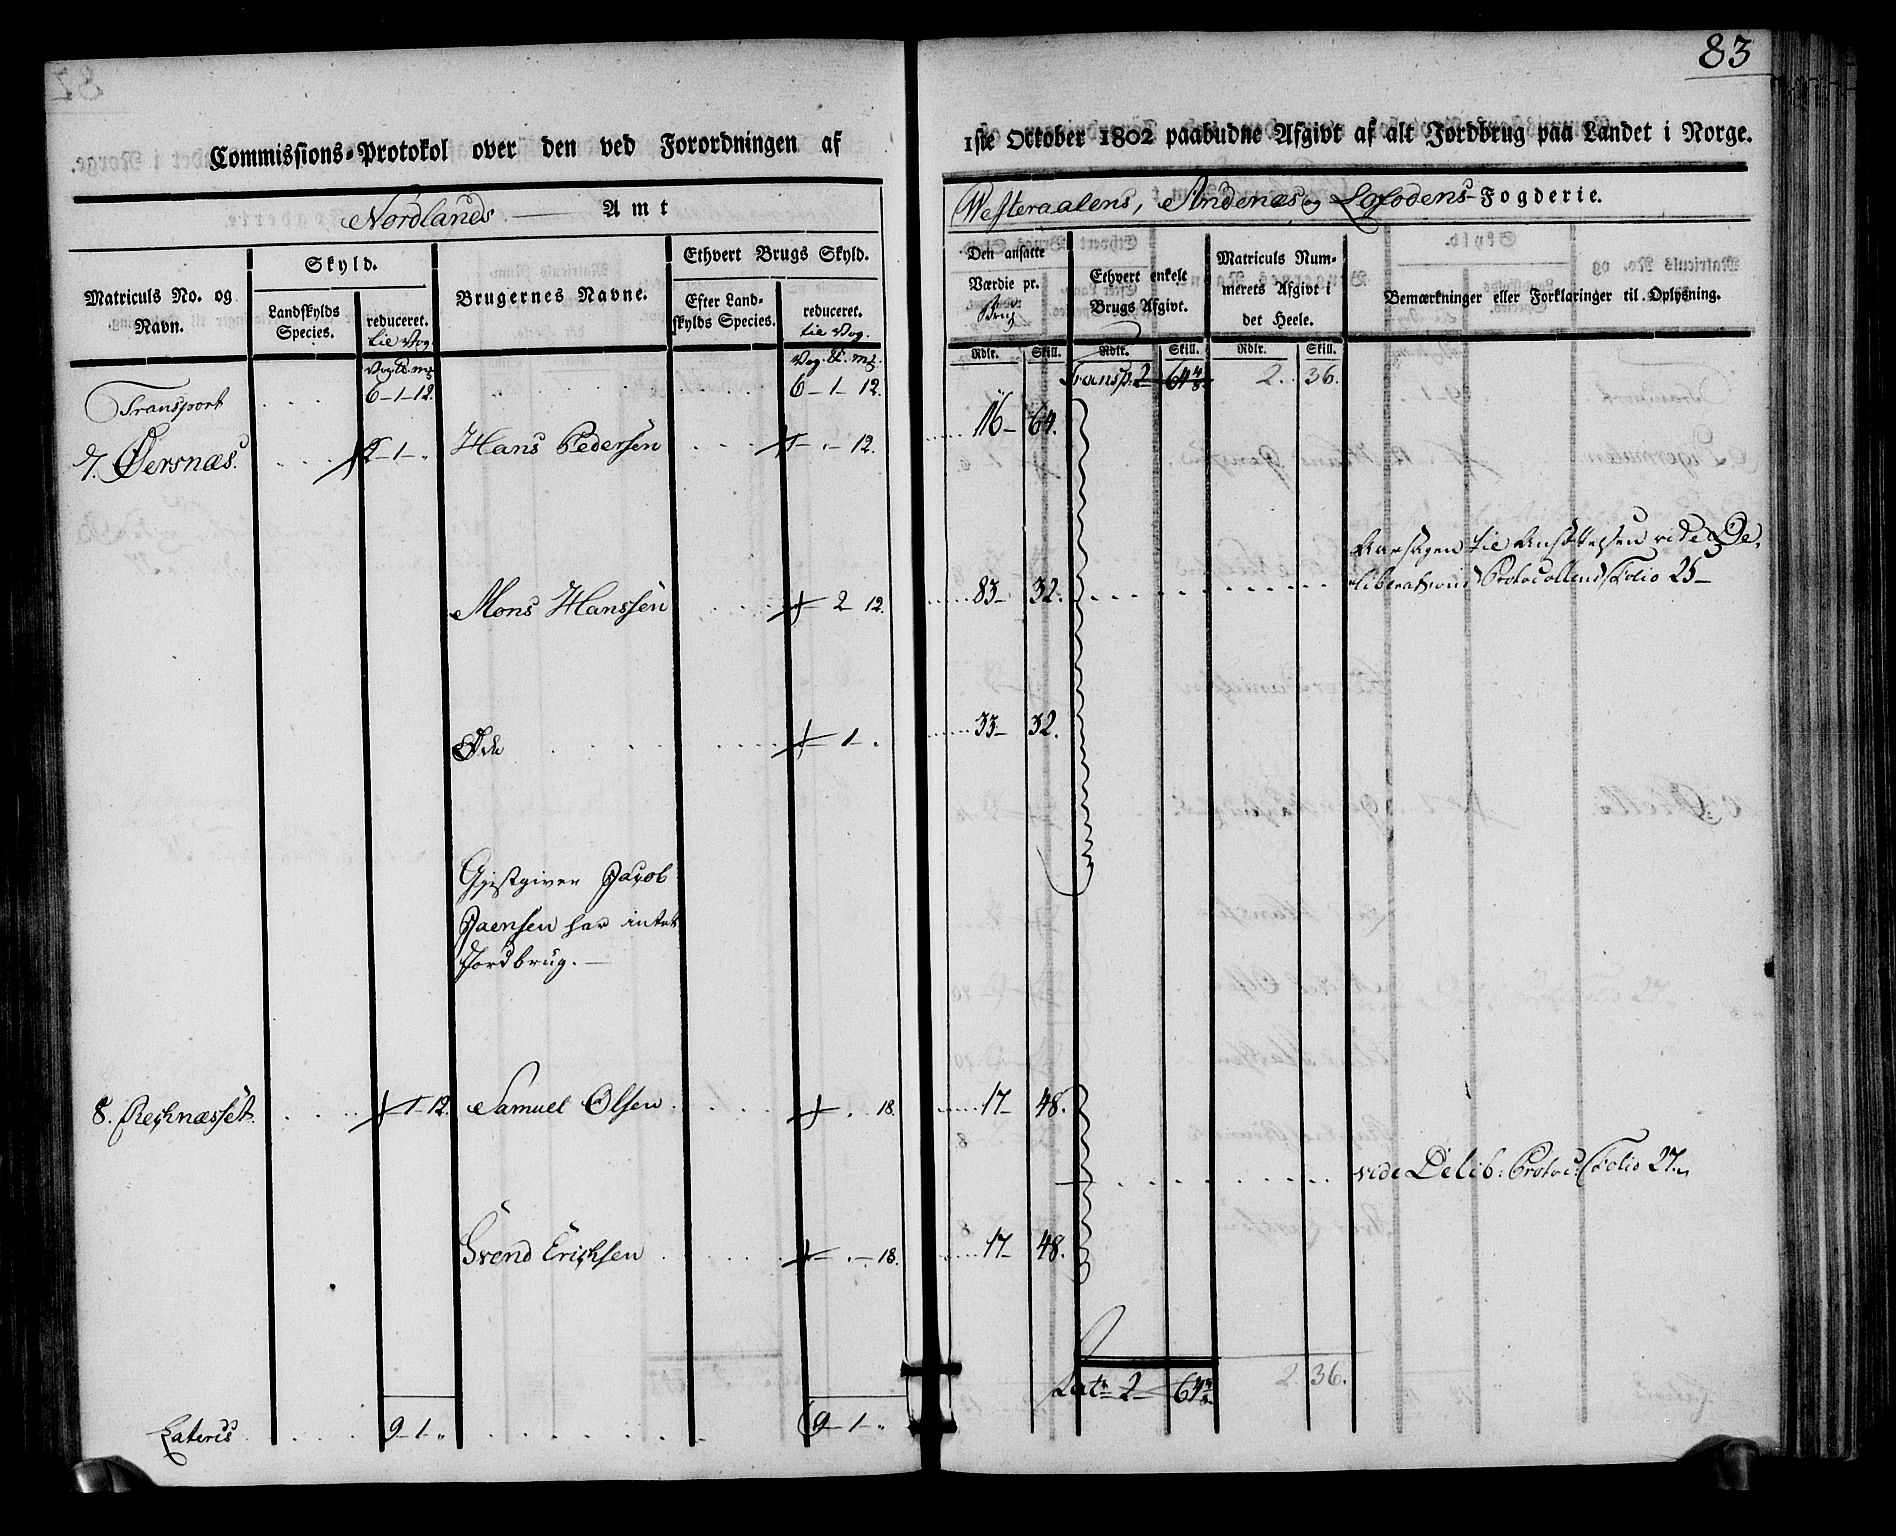 83
Commissions-Protokol over den ved Forordningen af
1ste October 1802 paabudne Afgivt af alt Jordbrug paa Landet i Norge.
Nordlands Amt
Westeraalens, Andenæs og Lofodens Fogderie.
Matriculs No. og Navn.
Skyld.
Landskylds Species.
reduceret. til Vog.
Brugernes Navne.
Ethvert Brugs Skyld.
Efter Landskylds Species.
reduceret. til Vog.
Den ansatte Værdie pr. Brug
Ethvert enkelt Brugs Afgivt.
Matriculs Nummerets Afgivt i det Heele.
Bemærkninger eller Forklaringer til Oplysning.
Rdlr. Skill. Rdlr. Skill. Rdlr. Skill.
Transport 6-1-12. 6-1-12. Transp: 2 64 2. 36.
7. Øersnæs. 2-1-" Hans Pedersen 1-.-12. 116- 64.
Aarsagen til Ansættelsen vide De-
liberations Protocollens Folio 25-
Mons Hanssen 2-12. 83- 32.
Øde 1-. 33- 32.
Gjestgiver Jacob
Jaensen har intet
Jordbrug.-
8. Reknæsset. 1-12. Samuel Olsen . 18. 17- 48.
vide Delib: Protoc: Folio 27.
Svend Erichsen .-18. 17- 48.
Lat: 2- 64 2. 36.
Lateris 9-1-" 9-1-"